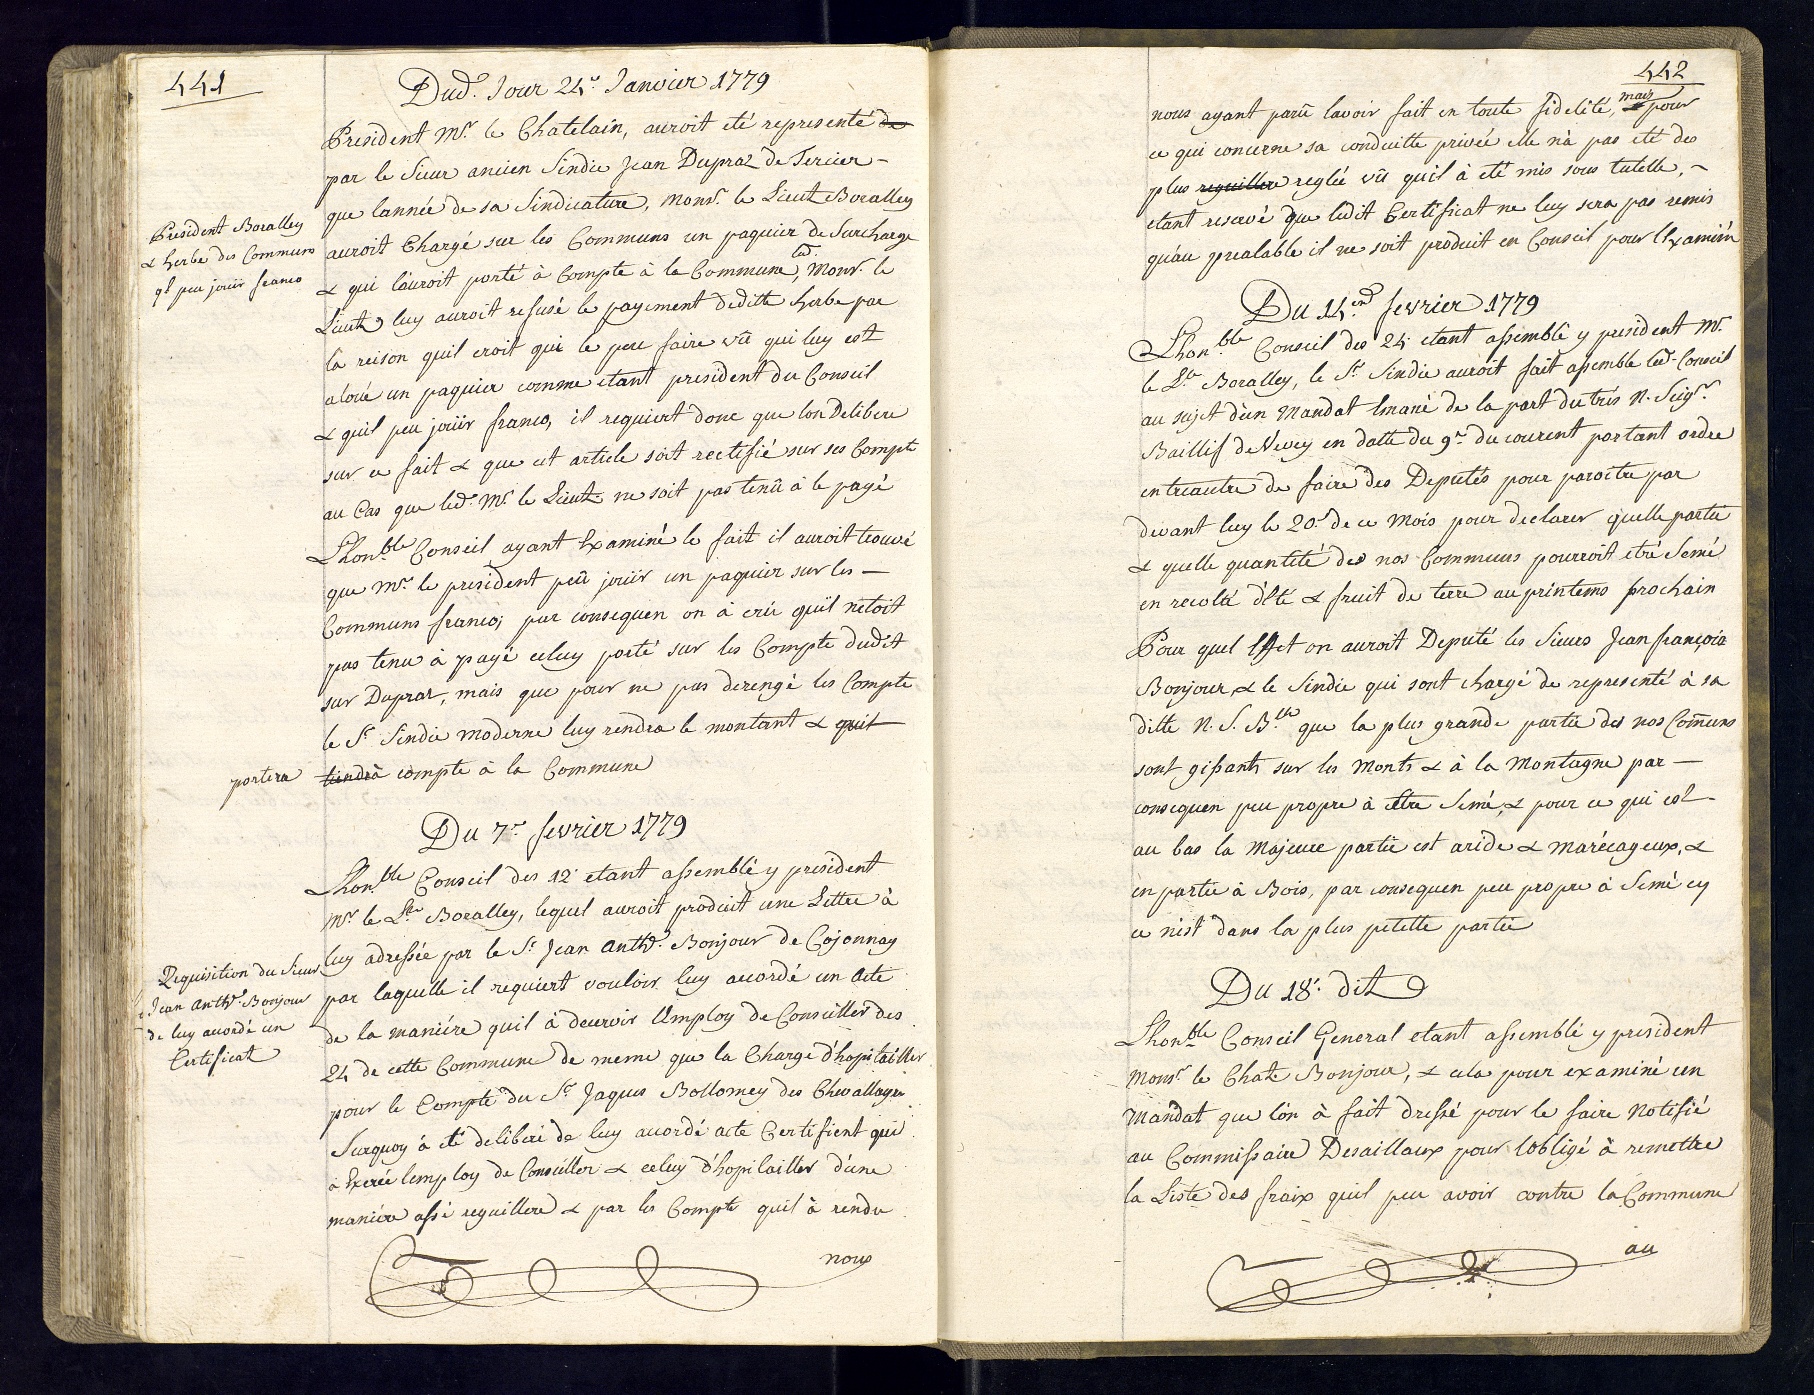 441
Dud.t Jour 24.e Janvier 1779
President Mr. le Chatelain, auroit eté representé de
par le Sieur ancien Sindic Jean Dupraz de Tercier –
que lannée de sa Sindicature, Monsr. le Lieut Boralley
President Boralley
& herbe des Communs
ql peu jouir franco
auroit Chargé sur les Communs un paquier de Surcharge
& qui lauroit porté à Compte à la Commune, led. Monsr. le
Lieut luy auroit refusé le payement deditte herbe par
la reison quil croit qui le peu faire vû qui luy est
aloüé un paquier comme etant president du Conseil
& quil peu joüir franco, il requiert donc que lon Delibere
sur ce fait & que cet article soit rectifié sur ses Compte
au Cas que led. Mr. le Lieut ne soit pas tenû à le payé
Lhon.ble Conseil ayant Examiné le fait il auroit trouvé
que Mr. le president peû joüir un paquier sur les –
Communs franco; par consequen on à crû quil netoit
pas tenu à payé celuy porté sur les Compte dudit
sur Dupraz, mais que pour ne pas derengé les Compte
le Sr. Sindic moderne luy rendra le montant & quit
portera
tiendra compte à la Commune
Du 7.e fevrier 1779
Lhon.ble Conseil des 12 etant assemblé y president
Mr. le Lt. Boralley, lequel auroit produit une Lettre à
luy adressée par le Sr. Jean Anth.e Bonjour de Cojonnay
Requisition du Sieur
Jean Anth.e Bonjour
de luy accordé un
Certificat
par laquelle il requiert vouloir luy accordé un acte
de la maniére quil à deservir lEmploy de Conseiller des
24 de cette Commune de meme que la Charge d'hopitailler
pour le Compte du Sr. Jaques Bollomey des Chevalleyres
Surquoy à eté deliberé de luy accordé acte Certifient qui
à Exercé lemploy de Conseiller & celuy d'hopitailler d'une
maniére assé reguillere & par les Compte quil à rendu
nous
442
nous ayant parû lavoir fait en toute fidelité, mais pour
ce qui concerne sa conduitte privée elle n'à pas eté des
plus reguillere reglée vû quil à eté mis sous tutelle, –
etant reservé que ledit Certificat ne luy sera pas remis
qu'au prealable il ne soit produit en Conseil pour l'Examin
Du 14.e fevrier 1779
Lhon.ble Conseil des 24 etant assemblé y president Mr.
le Lt. Boralley, le Sr. Sindic auroit fait assemblé led. Conseil
au sujet d'un Mandat Emané de la part du trés N. Seigr.
Baillif de Vevey en datte du 9.e du courent portant ordre
entreautre de faire des Deputés pour paroitre par
devant luy le 20.e de ce Mois pour declarer quelle partie
& quelle quantité des nos Communs pourroit etré Semé
en recolte d'Eté & fruit de terre au printems prochain
Pour quel Effet on auroit Deputé les Sieurs Jean françois
Bonjour & le Sindic qui sont chargé de representé à sa
ditte N. S. B.lle que la plus grande partie des nos Coñuns
sont gissants sur les Monts & à la Montagne par –
consequen peu propre à etre Semé, & pour ce qui est
au bas la Majeure partie est aride & marécageux, &
en partie à Bois, par consequen peu propre à Semé cy
ce nest dans la plus petitte partie
Du 18.e dit
Lhon.ble Conseil General etant assemblé y president
Monsr. le Chate Bonjour, & cela pour examiné un
Mandat que lon à fait dressé pour le faire Notifié
au Commissaire Desaillaux pour lobligé à remettre
la Liste des fraix quil peu avoir contre la Commune
au